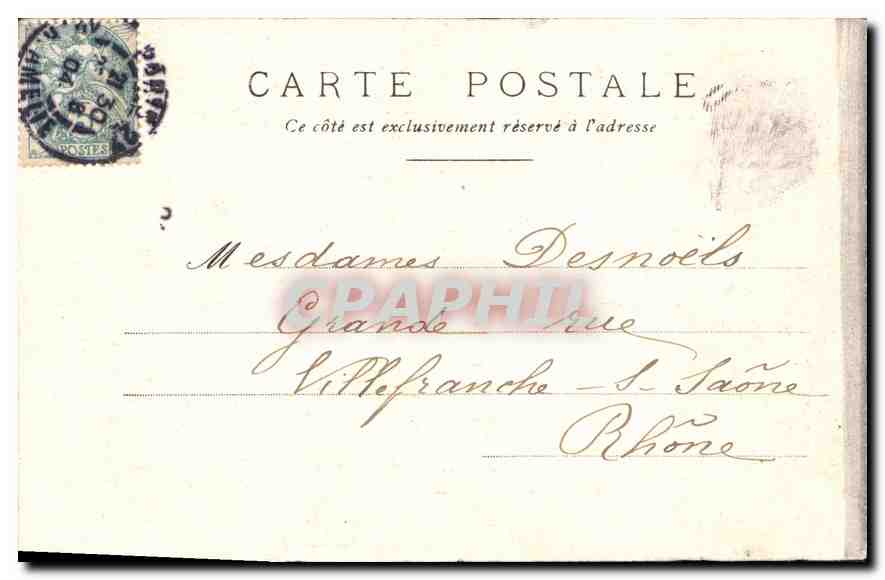 CARTE POSTALE
Ce côté est exclusivement réservé à l'adresse
POSTES
Mesdames Desnoëls
CPAPHIL
Grande rue
Villefranche-s-Saône
Rhône